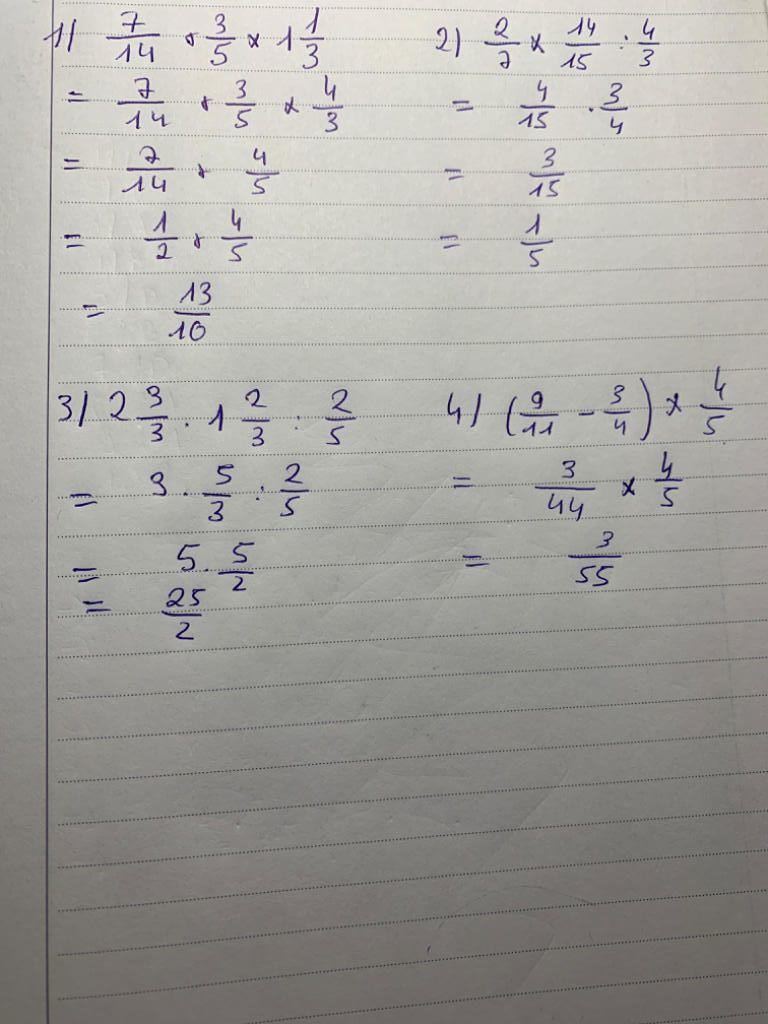 1) 7/14 + 3/5 × 1 1/3
= 7/14 + 3/5 × 4/3
= 7/14 + 4/5
= 1/2 + 4/5
= 13/10
2) 2/7 × 14/15 : 4/3
= 4/15 · 3/4
= 3/15
= 1/5
3) 2 3/3 · 1 2/3 : 2/5
= 3 · 5/3 : 2/5
= 5 · 5/2
= 25/2
4) (9/11 - 3/4) × 4/5
= 3/44 × 4/5
= 3/55